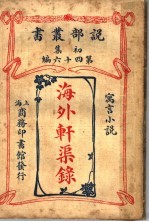 說部叢書
初集
第四十六編
寓言小說
海外軒渠錄
上海
商務印書館發行